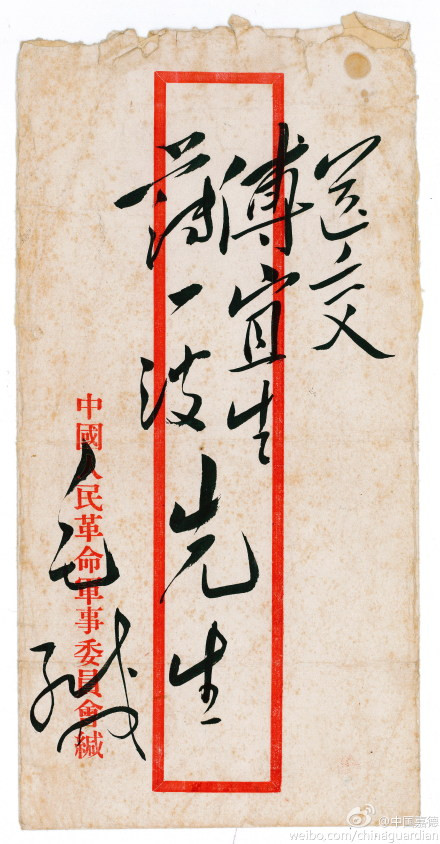 送交
傅宜生
薄一波
先生
毛緘
中國人民革命軍事委員會緘
@中国嘉德
weibo.com/chinaguardian